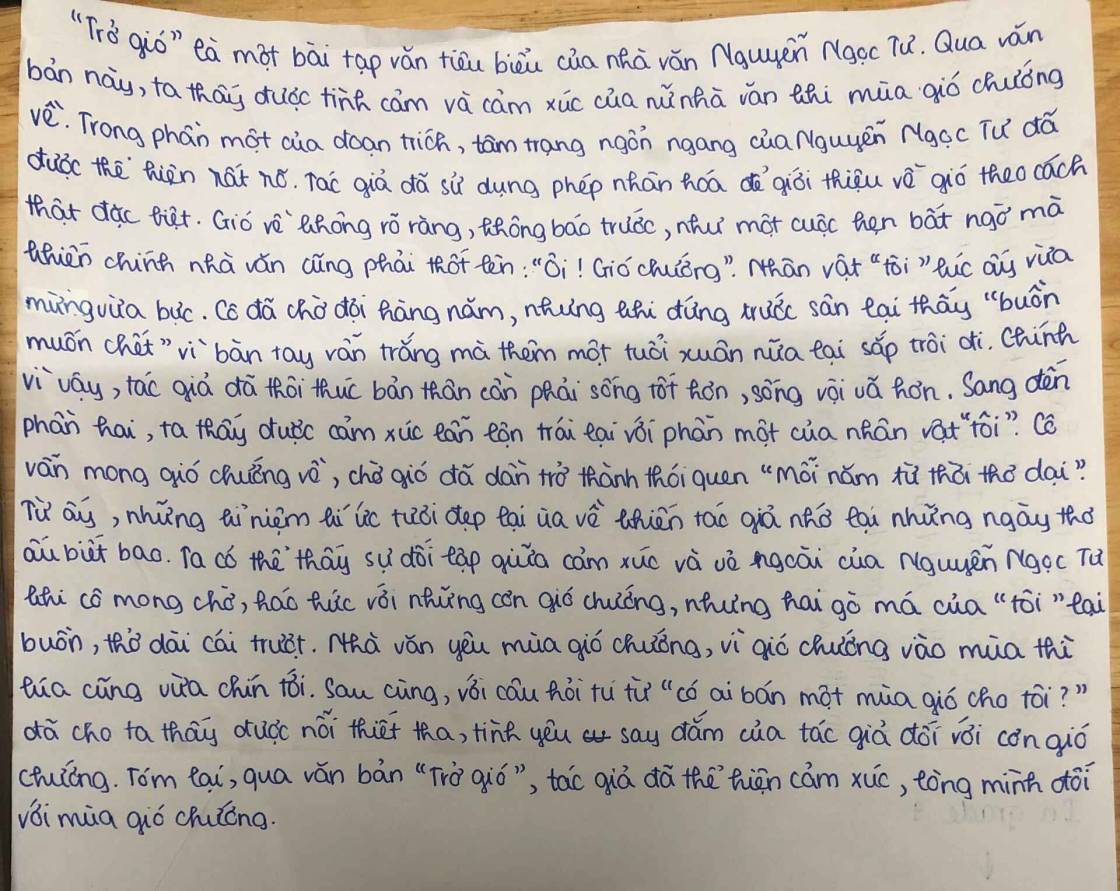 "Trở gió" là một bài tạp văn tiêu biểu của nhà văn Nguyễn Ngọc Tư. Qua văn
bản này, ta thấy được tình cảm và cảm xúc của nữ nhà văn khi mùa gió chướng
về. Trong phần một của đoạn trích, tâm trạng ngổn ngang của Nguyễn Ngọc Tư đã
được thể hiện rất rõ. Tác giả đã sử dụng phép nhân hoá để giới thiệu về gió theo cách
thật đặc biệt. Gió về không rõ ràng, không báo trước, như một cuộc hẹn bất ngờ mà
khiến chính nhà văn cũng phải thốt lên: "Ôi! Gió chướng". Nhân vật "tôi" lúc ấy vừa
mừng vừa bực. Cô đã chờ đợi hàng năm, nhưng khi đứng trước sân lại thấy "buồn
muốn chết" vì bàn tay vẫn trắng mà thêm một tuổi xuân nữa lại sắp trôi đi. Chính
vì vậy, tác giả đã thôi thúc bản thân cần phải sống tốt hơn, sống vội vã hơn. Sang đến
phần hai, ta thấy được cảm xúc lẫn lộn trái lại với phần một của nhân vật "tôi". Cô
vẫn mong gió chướng về, chờ gió đã dần trở thành thói quen "Mỗi năm từ thời thơ dại".
Từ ấy, những kỉ niệm kí ức tươi đẹp lại ùa về khiến tác giả nhớ lại những ngày thơ
ấu biết bao. Ta có thể thấy sự đối lập giữa cảm xúc và vẻ ngoài của Nguyễn Ngọc Tư
khi cô mong chờ, háo hức với những cơn gió chướng, nhưng hai gò má của "tôi" lại
buồn, thở dài cái trượt. Nhà văn yêu mùa gió chướng, vì gió chướng vào mùa thì
lúa cũng vừa chín tới. Sau cùng, với câu hỏi tu từ "có ai bán một mùa gió cho tôi?"
đã cho ta thấy được nỗi thiết tha, tình yêu say đắm của tác giả đối với cơn gió
chướng. Tóm lại, qua văn bản "Trở gió", tác giả đã thể hiện cảm xúc, lòng mình đối
với mùa gió chướng.